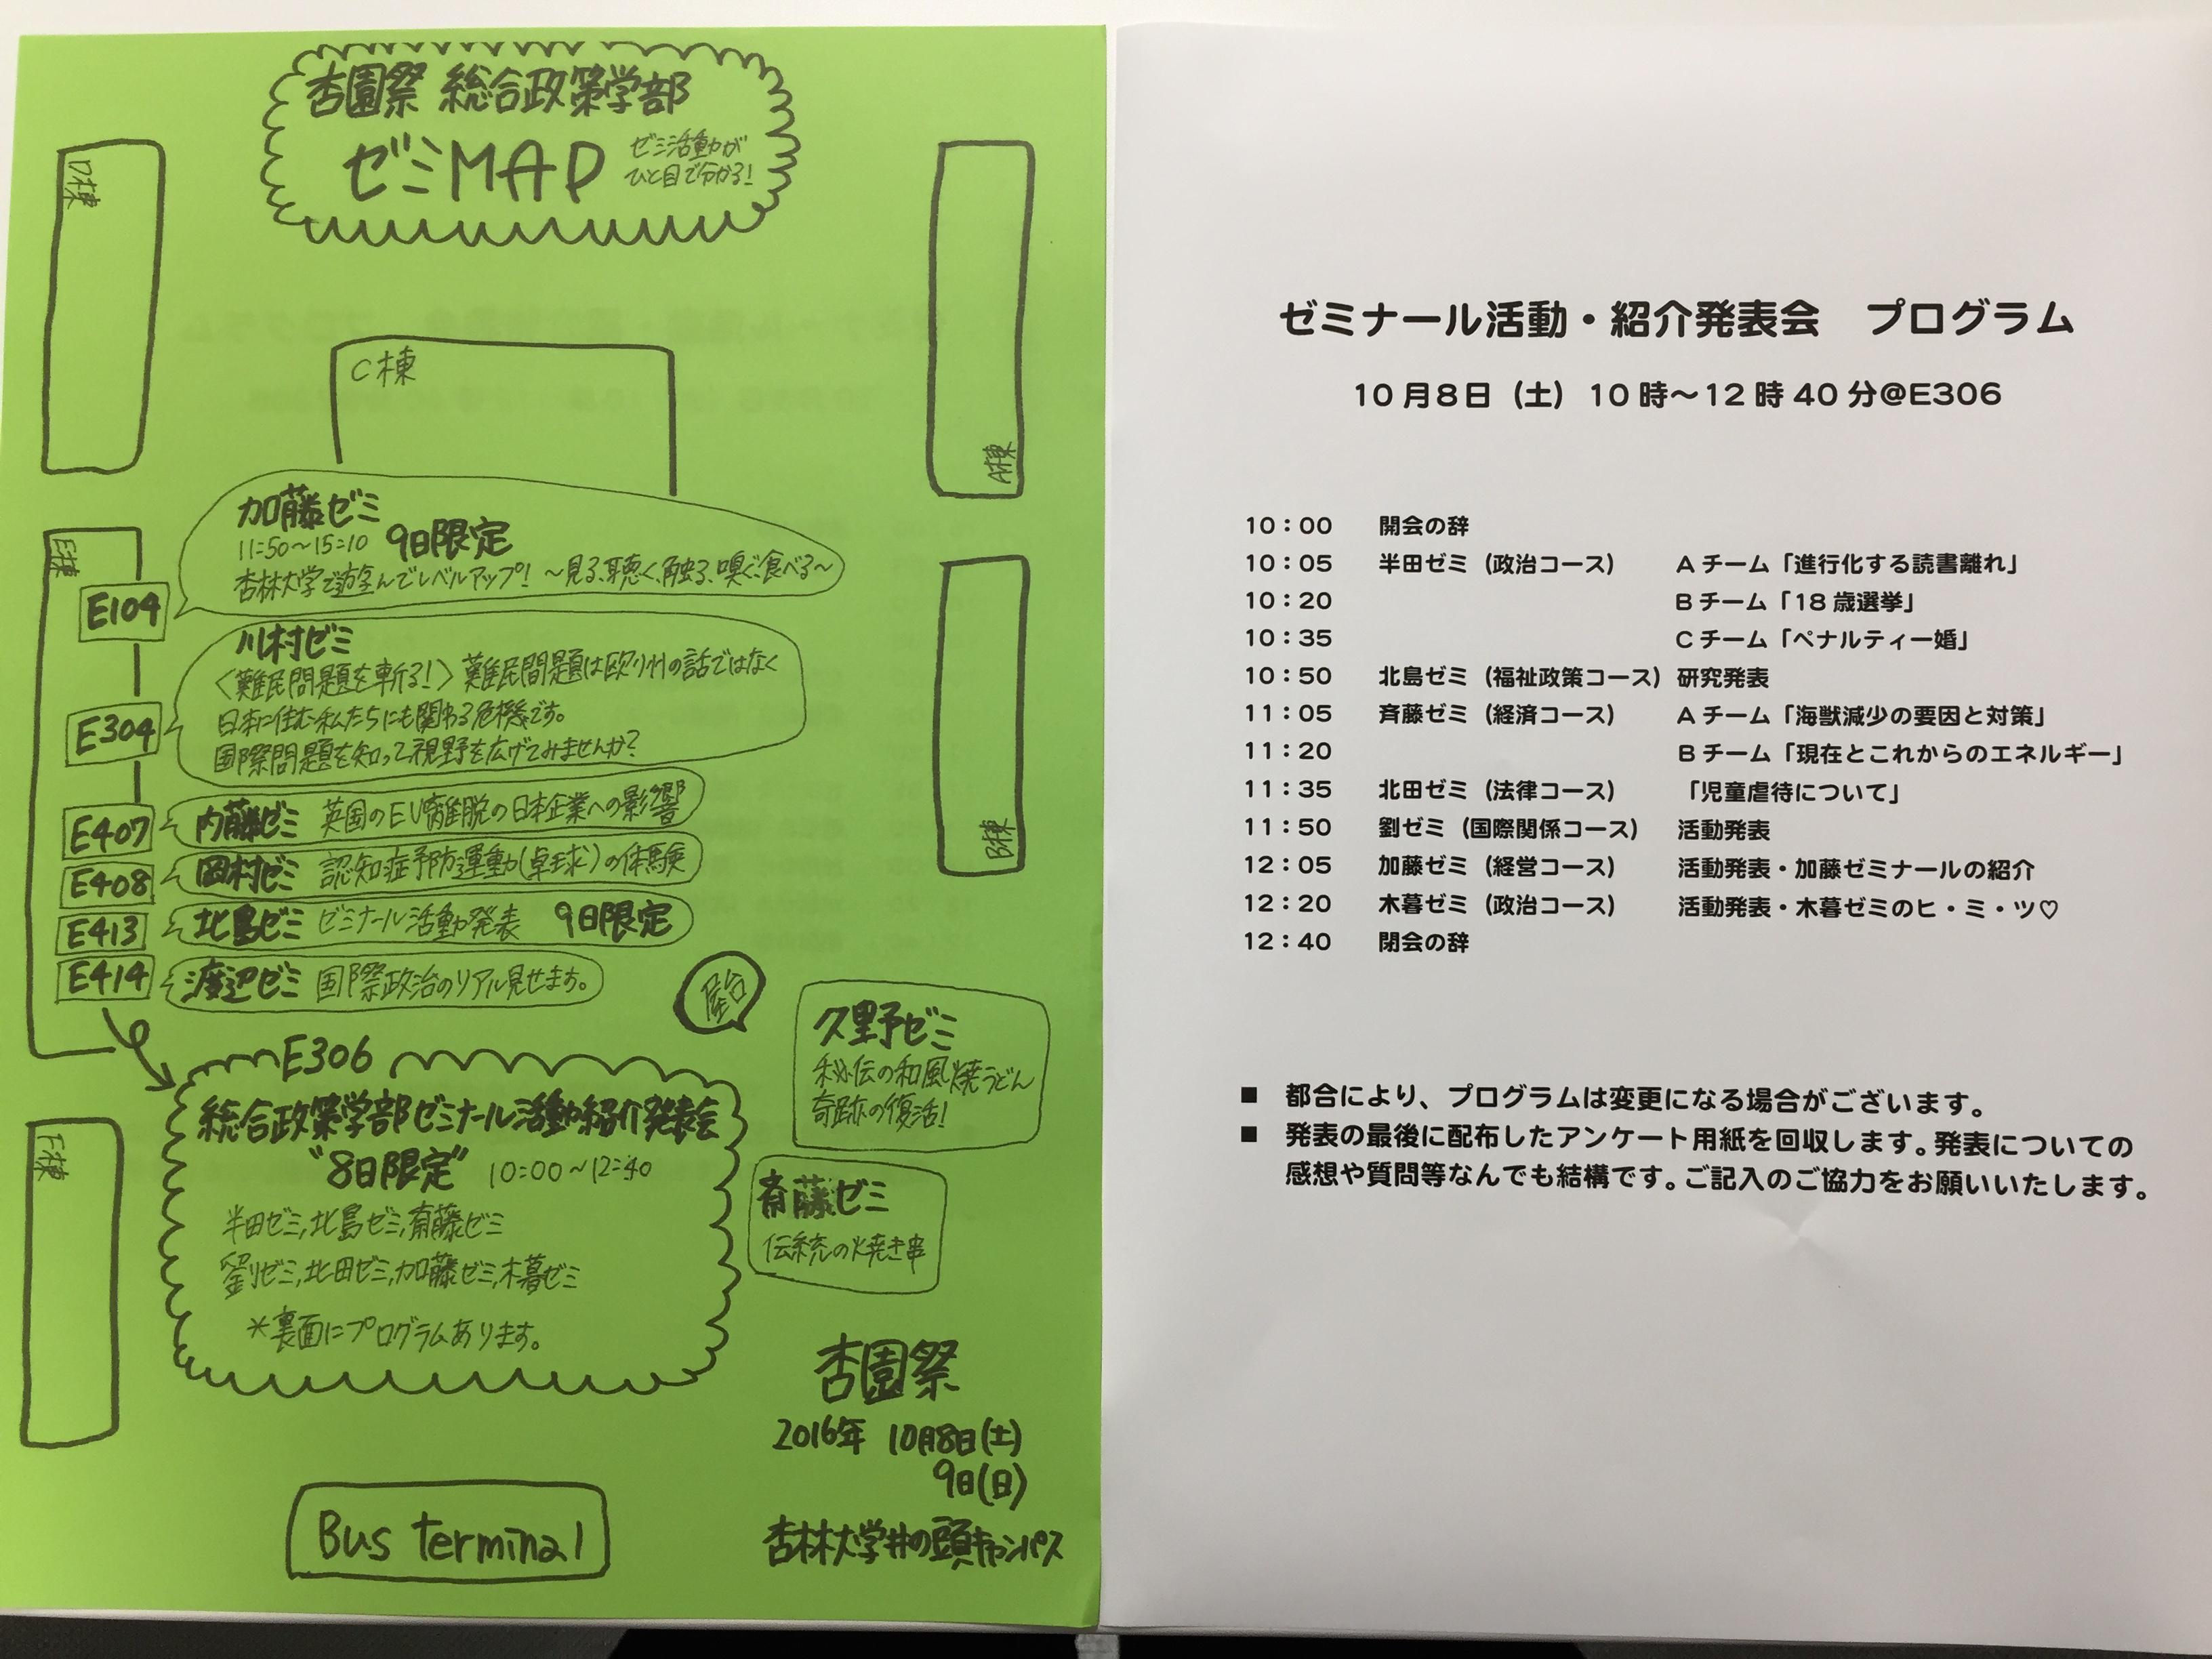 杏園祭 総合政策学部
ゼミMAP
ゼミ活動が
ひと目で分かる!
D棟
C棟
A棟
E棟
B棟
F棟
E104
加藤ゼミ
11:50〜15:10 9日限定
杏林大学で遊学んでレベルアップ! 〜見る、聴く、触る、嗅ぐ、食べる〜
E304
川村ゼミ
〈難民問題を斬る!〉難民問題は欧州の話ではなく
日本に住む私たちにも関わる危機です。
国際問題を知って視野を広げてみませんか?
E407 内藤ゼミ 英国のEU離脱の日本企業への影響
E408 岡村ゼミ 認知症予防運動(卓球)の体験
E413 北島ゼミ ゼミナール活動発表 9日限定
E414 渡辺ゼミ 国際政治のリアル見せます。
屋台
久野ゼミ
秘伝の和風焼うどん
奇跡の復活!
斎藤ゼミ
伝統の焼き串
E306
総合政策学部ゼミナール活動紹介発表会
"8日限定" 10:00〜12:40
半田ゼミ,北島ゼミ,斎藤ゼミ
劉ゼミ,北田ゼミ,加藤ゼミ,木暮ゼミ
*裏面にプログラムあります。
杏園祭
2016年 10月8日(土)
9日(日)
杏林大学井の頭キャンパス
Bus terminal
ゼミナール活動・紹介発表会 プログラム
10月8日(土)10時〜12時40分@E306
10:00 開会の辞
10:05 半田ゼミ(政治コース) Aチーム「進行化する読書離れ」
10:20 Bチーム「18歳選挙」
10:35 Cチーム「ペナルティー婚」
10:50 北島ゼミ(福祉政策コース) 研究発表
11:05 斉藤ゼミ(経済コース) Aチーム「海獣減少の要因と対策」
11:20 Bチーム「現在とこれからのエネルギー」
11:35 北田ゼミ(法律コース) 「児童虐待について」
11:50 劉ゼミ(国際関係コース) 活動発表
12:05 加藤ゼミ(経営コース) 活動発表・加藤ゼミナールの紹介
12:20 木暮ゼミ(政治コース) 活動発表・木暮ゼミのヒ・ミ・ツ♡
12:40 閉会の辞
■ 都合により、プログラムは変更になる場合がございます。
■ 発表の最後に配布したアンケート用紙を回収します。発表についての
感想や質問等なんでも結構です。ご記入のご協力をお願いいたします。